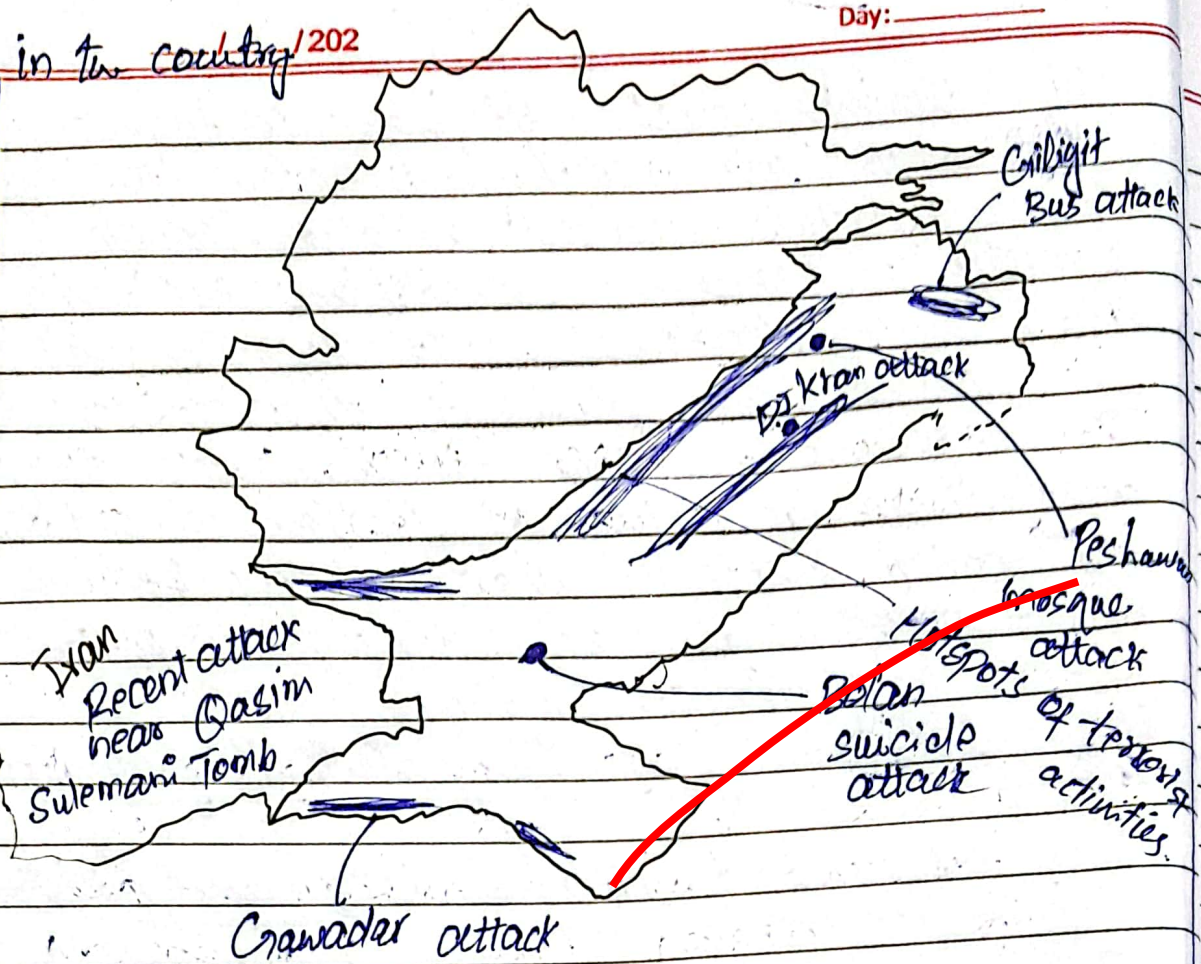 Day:
in the country /202
Gilbigit
Bus attack
D.I Khan attack
Peshawar
mosque
attack
Hotspots of terrorist
activities.
Bolan
suicide
attack
Iran
Recent attack
near Qasim
Sulemani Tomb.
Gawadar attack